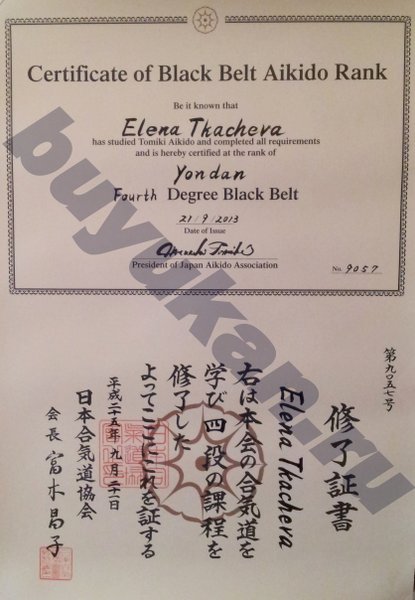 Certificate of Black Belt Aikido Rank
Be it known that
Elena Tkacheva
has studied Tomiki Aikido and completed all requirements
and is hereby certified at the rank of
Yondan
Fourth Degree Black Belt
21/9/2013
Date of Issue
President of Japan Aikido Association
No. 9057
buyukan.ru
第九〇五七号
修了証書
Elena Tkacheva
右は本会の合気道を
学び四段の課程を
修了した
よってここにこれを証する
平成二十五年九月二十一日
日本合気道協会
会長 富木昌子